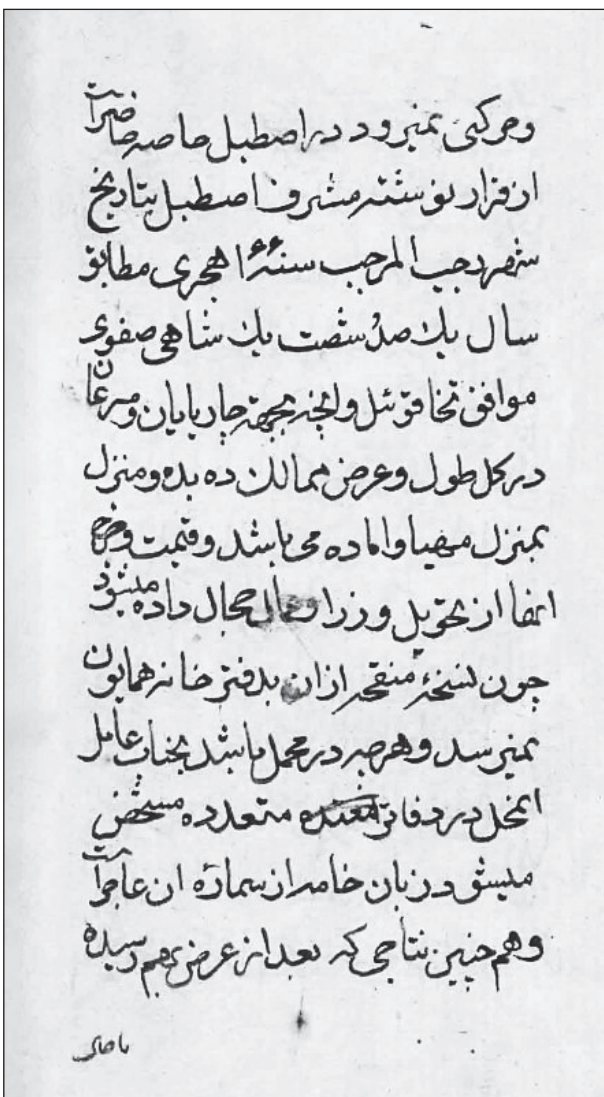 و حرکتی نمیرود در اصطبل خاصه حاضرات
از قرار نوشته مشرف اصطبل بتاریخ
شهر رجب المرجب سنه هجری مطابق
سال یک صد شصت یک شاهی صفوی
موافق تخاقوئیل و انچه بجهة چارپایان و مرغان
در کل طول و عرض ممالک ده بده و منزل
بمنزل مهیا و اماده می باشد و قیمت و خرج
انها از تحویل وزرا و عمال محال داده میشود
چون نسخهٔ منقحه از ان بدفتر خانه همایون
نمیرسد و هرچه در محمل باشد بجناب عامل
انمحل در دفاتر متعدده مشخص
میشود زبان خامه از شماره ان عاجز است
و هم چنین نتاجی که بعد از عرض بهم رسیده